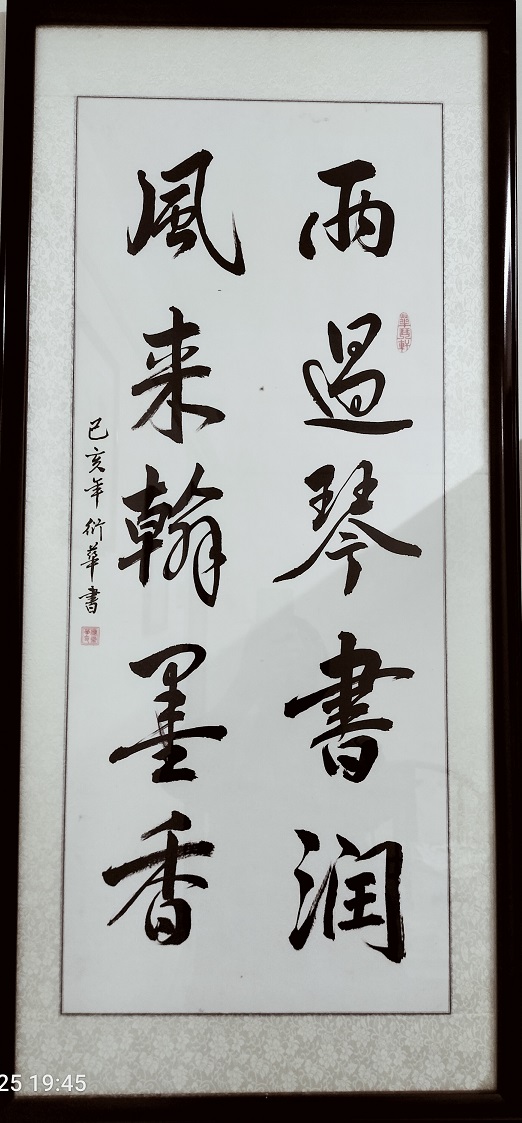 雨過琴書润
風来翰墨香
己亥年衍華書
25 19:45